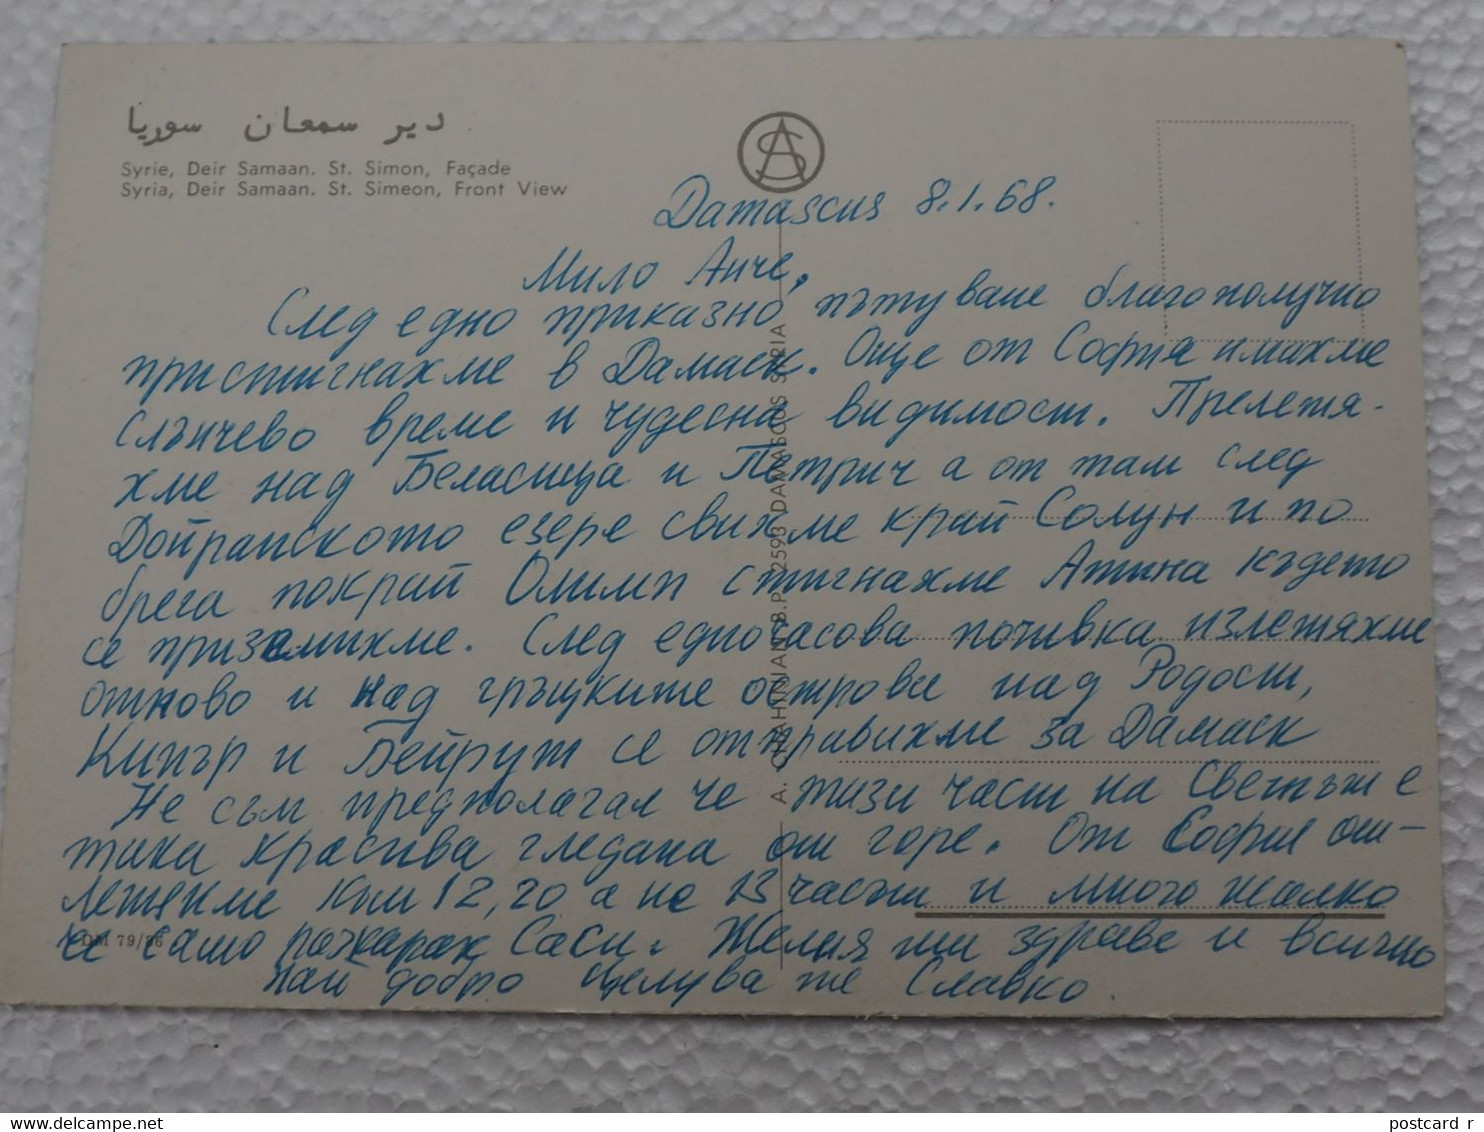 دير سمعان سوريا
Syrie, Deir Samaan. St. Simon, Façade
Syria, Deir Samaan. St. Simeon, Front View
AS
Damascus 8.1.68.
Мило Анче,
След едно приказно пътуване благополучно
пристигнахме в Дамаск. Още от София имахме
слънчево време и чудесна видимост. Прелетя-
хме над Беласица и Петрич а от там след
Дойранското езеро свихме край Солун и по
брега покрай Олимп стигнахме Атина където
се приземихме. След едночасова почивка излетяхме
отново и над гръцките острови над Родост,
Кипър и Бейрут се отправихме за Дамаск
Не съм предполагал че тази част на Светът е
така красива гледана от горе. От София от-
летяхме към 12,20 а не 13 часът и много жалко
че само Саси. Желая ти здраве и всичко
най добро Целува те Славко.
A. CHAHINIAN B.P. 2593 DAMASCUS SYRIA
DM 79/86
postcard r
www.delcampe.net